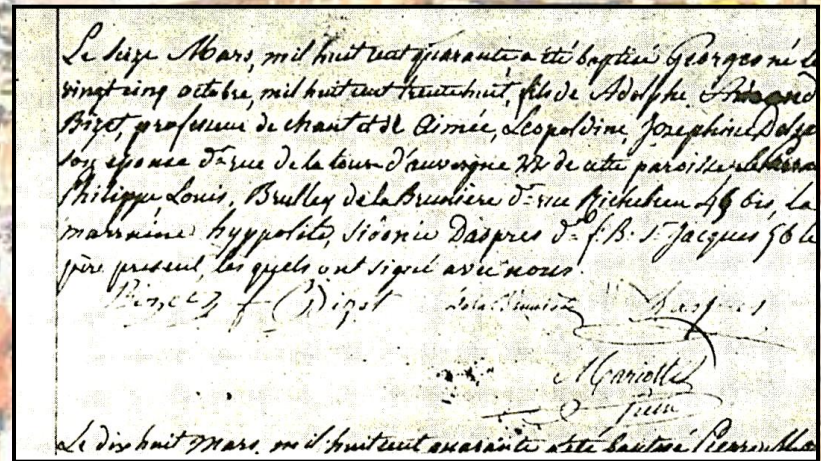 Le Seize Mars, mil huit cent quarante a été baptisé Georges né le
vingt cinq octobre, mil huit cent trente huit, fils de Adolphe Armand
Bizet, professeur de chant et de Aimée, Léopoldine, Joséphine Delsa
son épouse dt rue de la tour d'auvergne 22 de cette paroisse
Philippe Louis, Brulley de la Brunière dt rue Richelieu 45 bis, la
marraine hyppolite, Sidonie Daspres dt f. B. St Jacques 56 le
père présent, les quels ont signé avec nous
Bizet Daspres
Le dix huit Mars, mil huit cent quarante a été baptisé